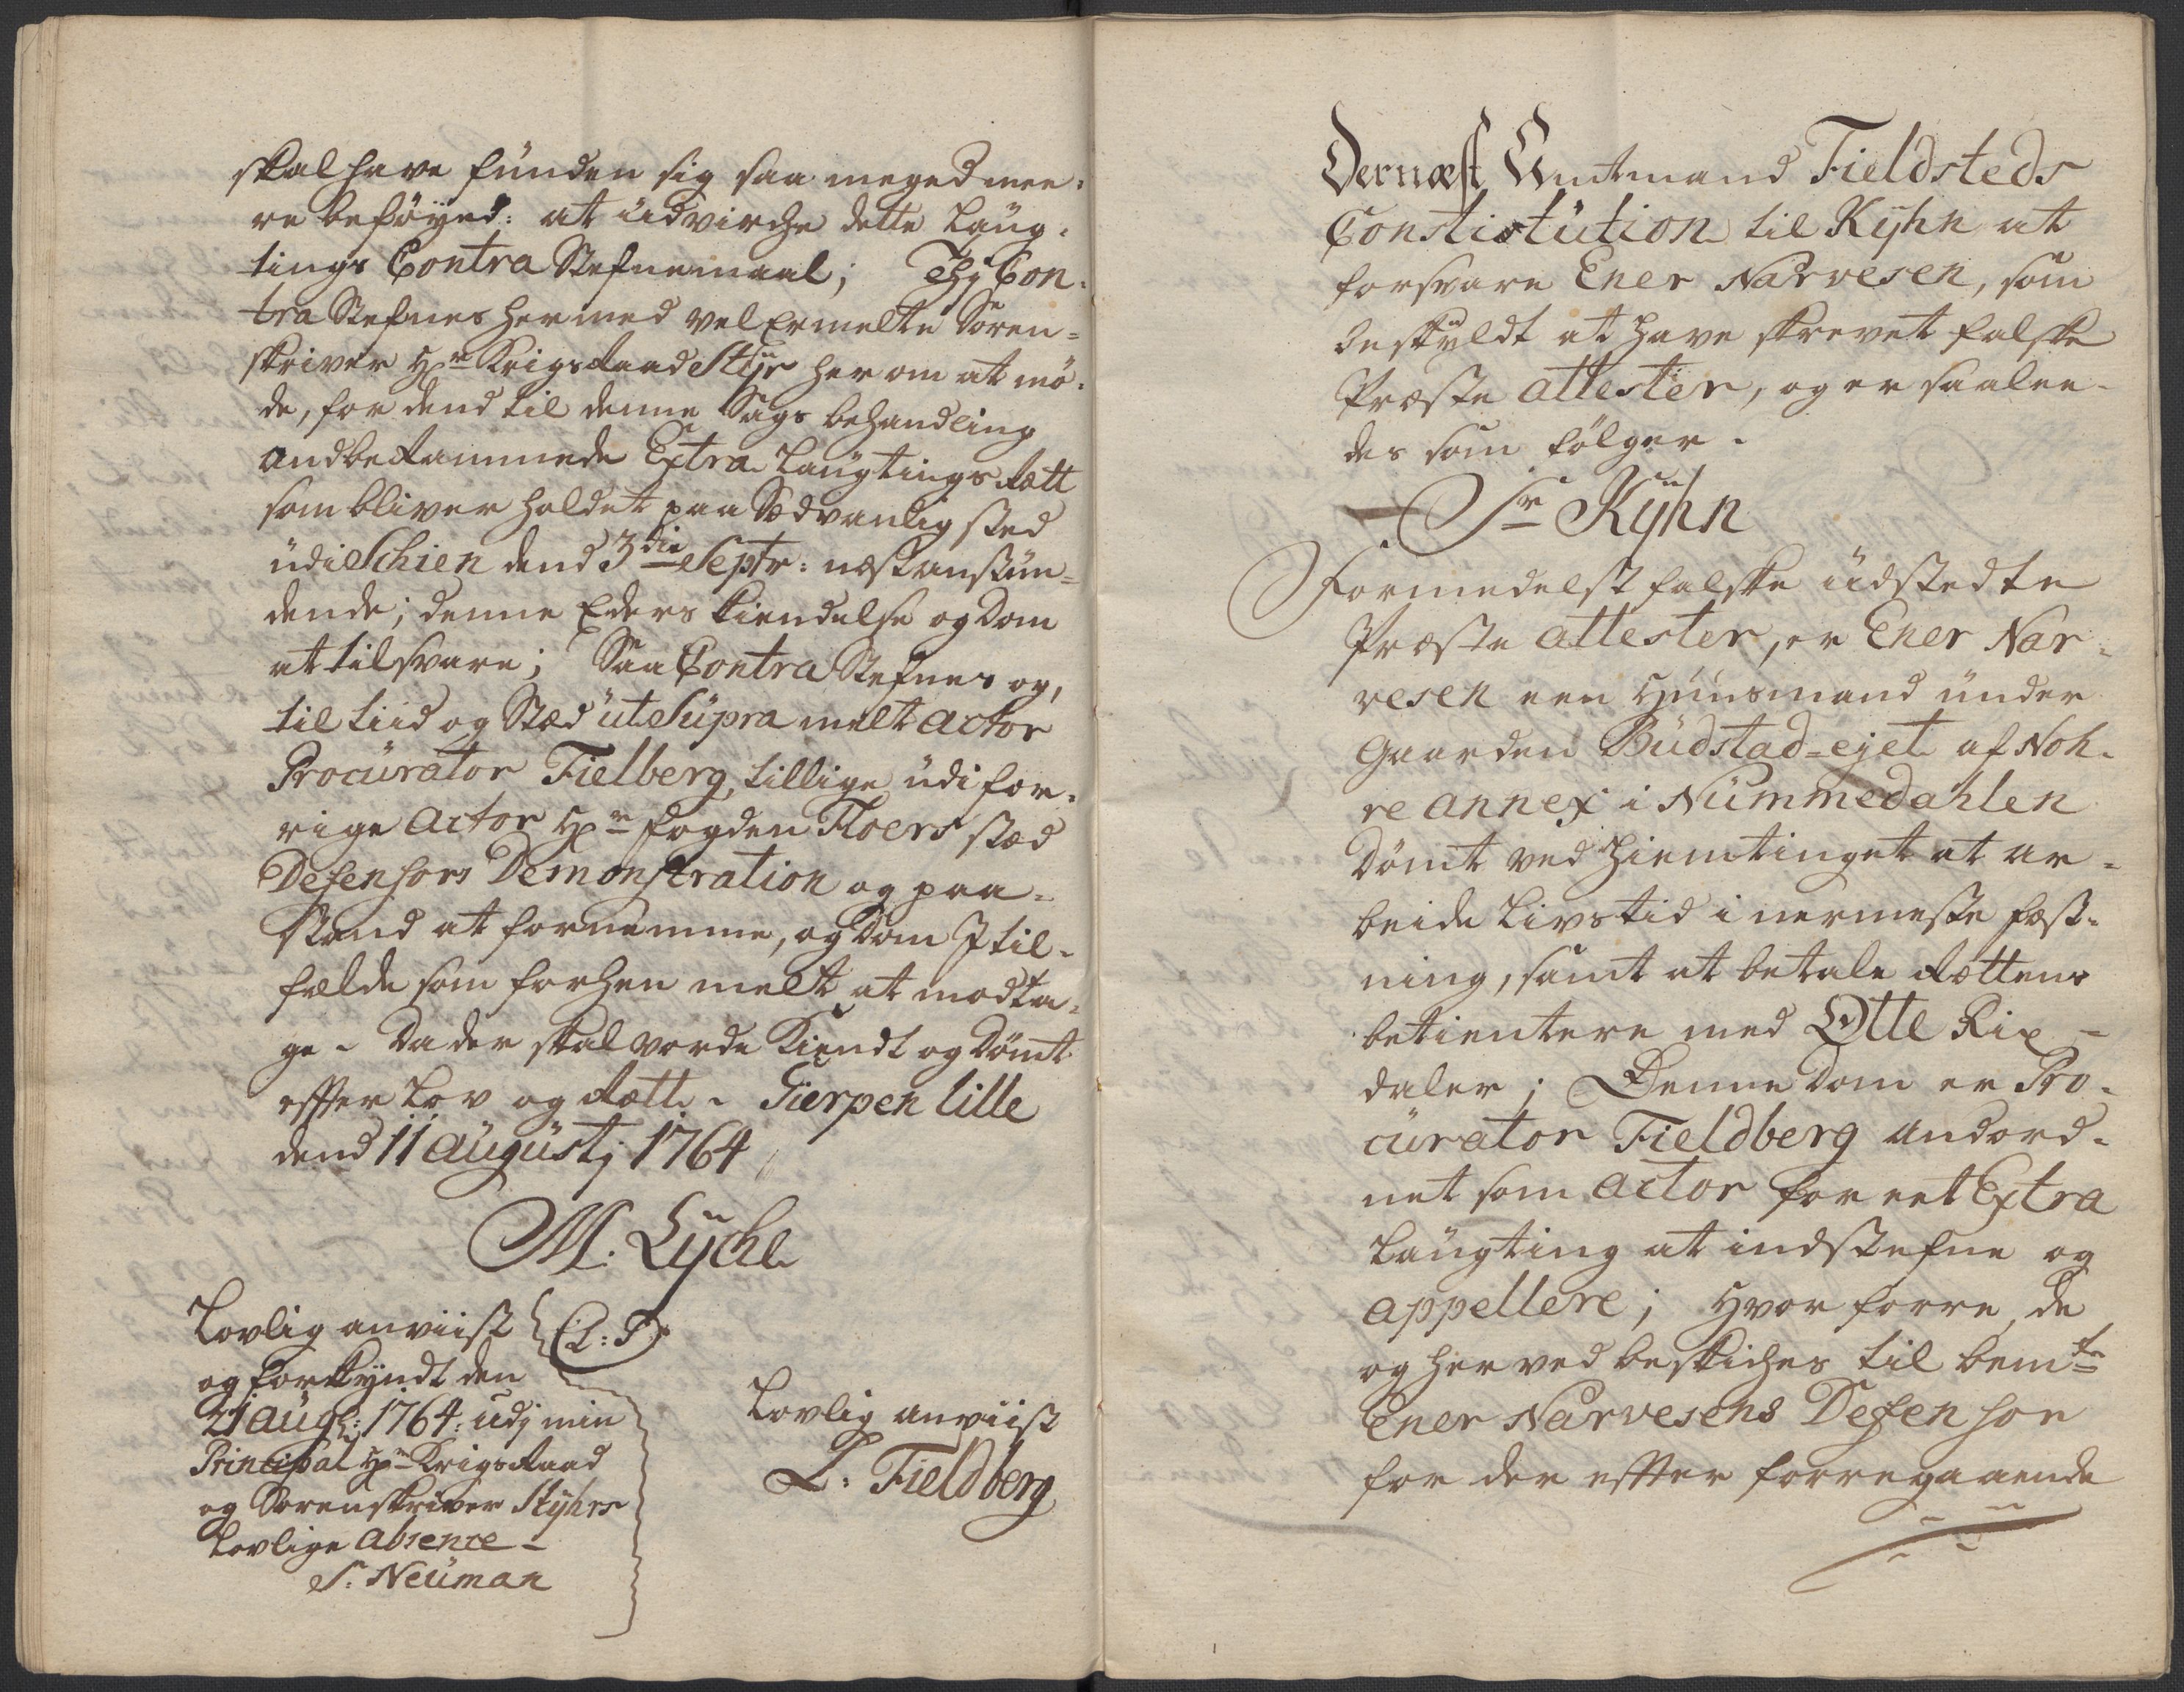 skal have funden sig saa meged mee-
re beføyed: at udvirche dette Laug-
tings Contra Stefnemaal; Thj Con-
tra Stefnes hermed vel ermelte Soren-
skriver Hr Krigs Raad Styr her om at mö-
de, for dend til denne Sags behandling
andberammede Extra Laugtings Rætt
som bliver holdet paa Sædvanlig stæd
udi Schien dend 3die Septr: næstanstun-
dende; denne Eders Kiendelse og Dom
at tilsvare; Saa Contra Stefnes og,
til tiid og Stæd ut Supra melt Actor
Procurator Fielberg, tillige udi for-
rige Actor Hr fogden Floers stæd
Defensors Demonstration og paa-
stand at fornemme, og Dom J til-
fælde som forhen melt at modta-
ge - Da der skal vorde Kiendt og Dömt
effter Lov og Rætt. - Gierpen lille
dend 11 augustj 1764
M: Lyche
Lovlig anviist (L: S)
og forkyndt den
21 aug: 1764: udj min
Principal Hr Krigs Raad
og Sorenskriver Styhrs
Lovlige Absence -
S: Neuman
Lovlig anviist
L: Fieldberg
Dernæst Amtmand Fieldsteds
Constistution til Kyhn at
forsvare Ener Narvesen, som
Beskyldt at have skrevet falske
Præste attester, og er saalee-
des som fölger.
Sr Kyhn
Formedelst falske udstedte
Præste attester, er Ener Nar-
vesen een Huusmand under
Gaarden Budstad-ejet af Noh-
re annex i Nummedahlen
Dömt ved Hiemtinget at ar-
beide Livs tid i nermeste fæst-
ning, samt at betale Rættens
betientere med Otte Rix-
daler; Denne Dom er Pro-
curator Fieldberg andord-
net som Actor for eet Extra
Laugting at indstefne og
appellere; Hvor forre de
og her ved beskiches til bemte
Ener Narvesens Defensor
for der effter forregaaende